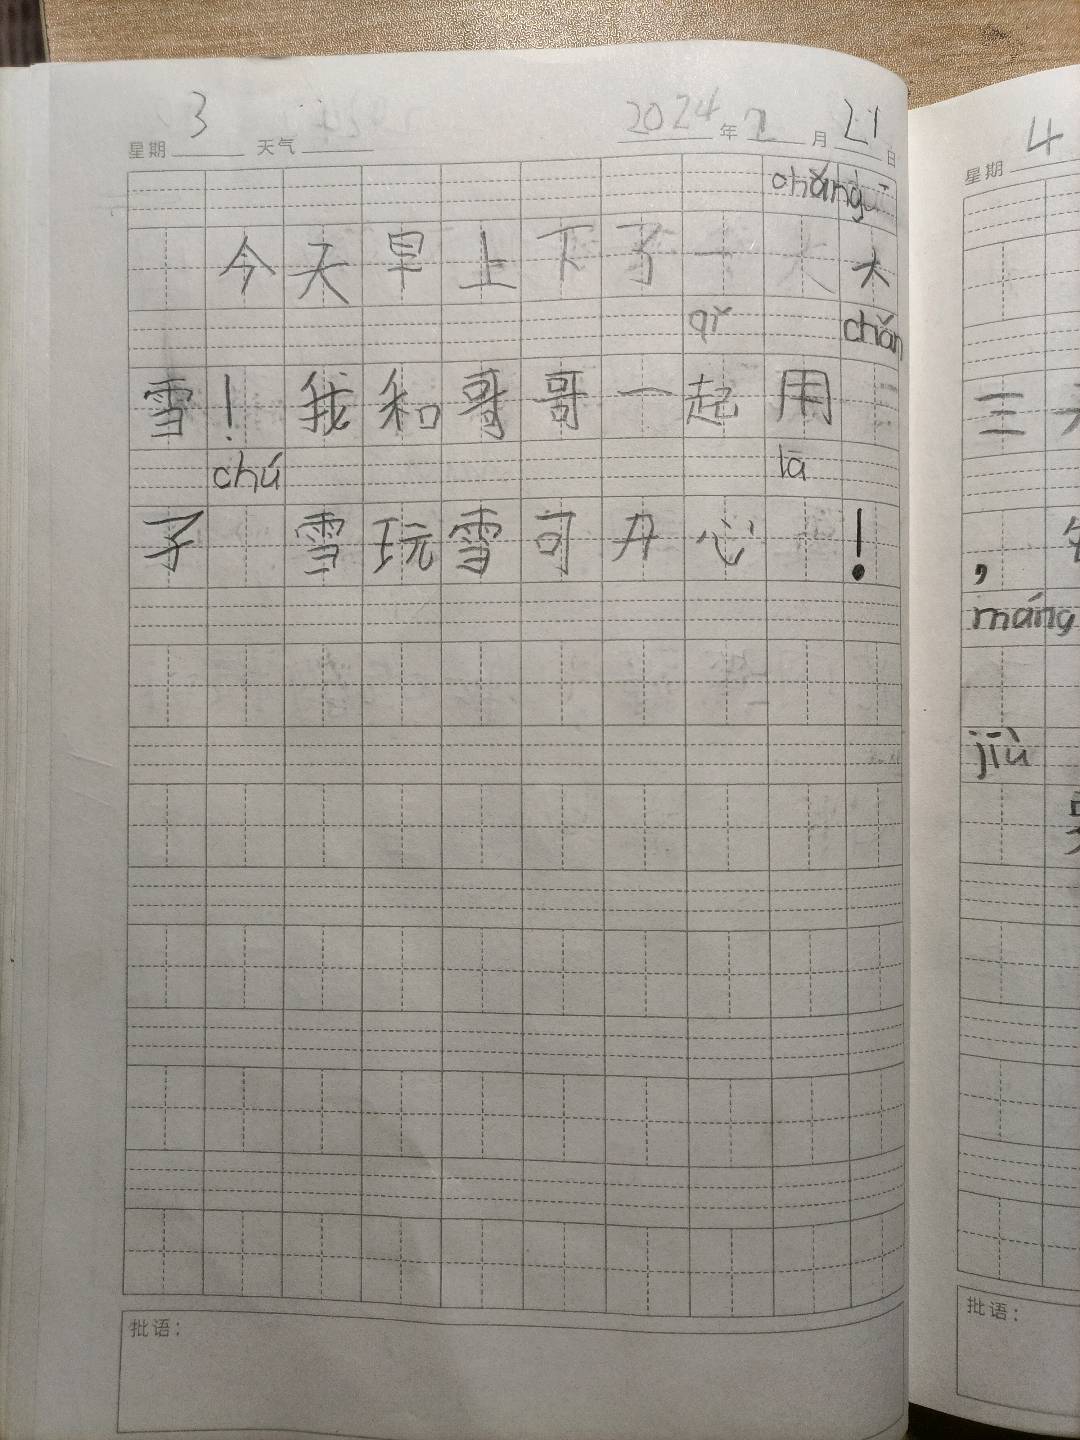 星期 3 天气 2024 年 2 月 21 日
chǎng
今天早上下了一大大
qǐ chǎn
雪！我和哥哥一起用
chú lā
子 雪玩雪可开心 ！
批语：
星期 4
三
，
máng
jiù
批语：